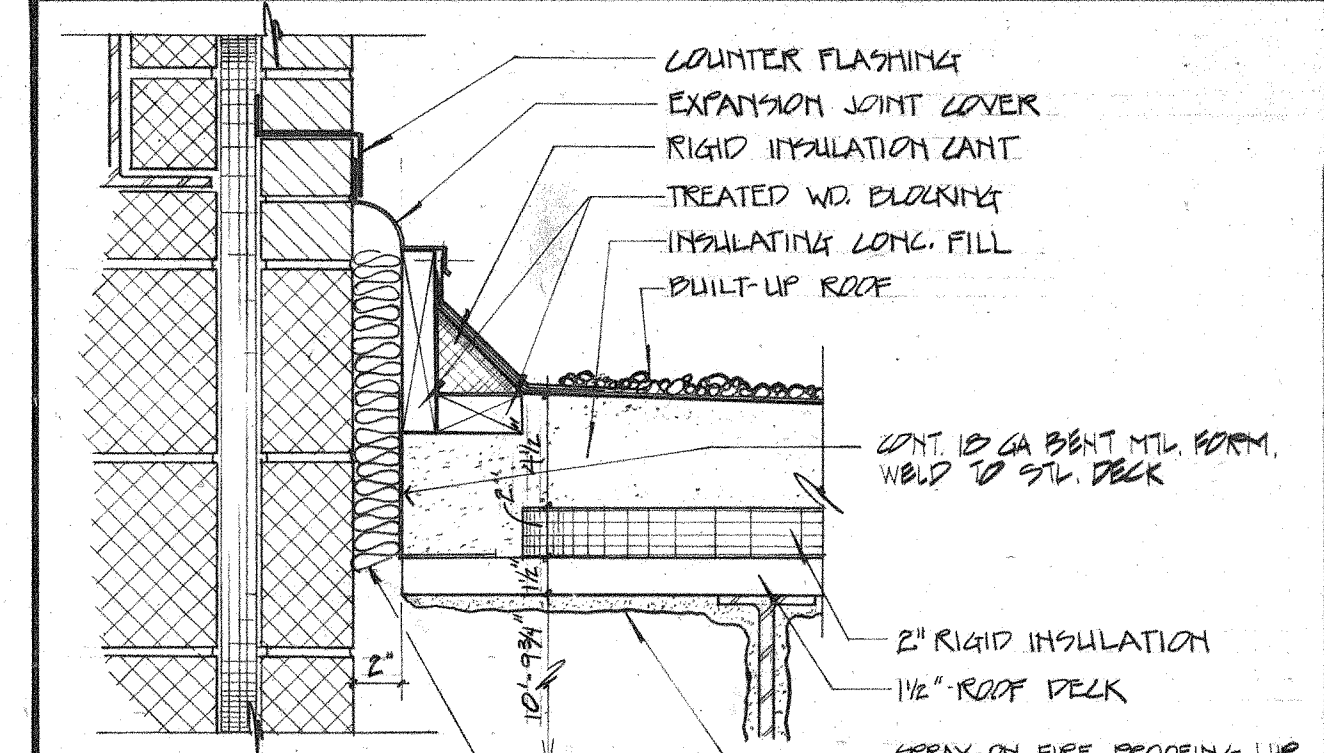 COUNTER FLASHING
EXPANSION JOINT COVER
RIGID INSULATION CANT
TREATED WD. BLOCKING
INSULATING CONC. FILL
BUILT-UP ROOF
CONT. 18 GA BENT MTL. FORM,
WELD TO STL. DECK
4 1/2"
2"
1 1/2"
10'-9 3/4"
2"
2" RIGID INSULATION
1 1/2" ROOF DECK
SPRAY ON FIRE PROOFING